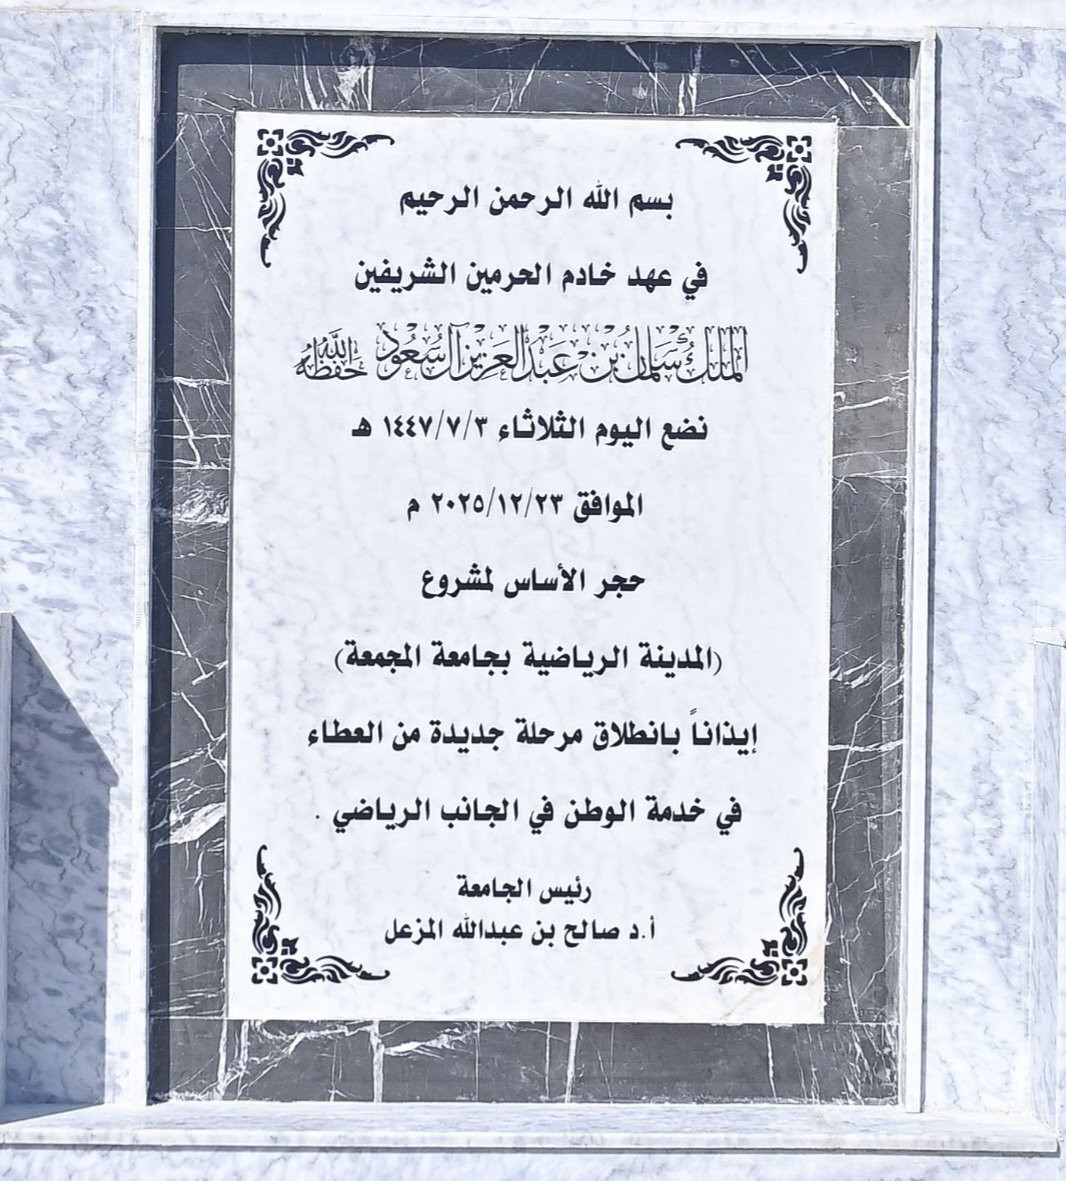 بسم الله الرحمن الرحيم
في عهد خادم الحرمين الشريفين
الملك سلمان بن عبدالعزيز آل سعود حفظه الله
نضع اليوم الثلاثاء ١٤٤٧/٧/٣ هـ
الموافق ٢٠٢٥/١٢/٢٣ م
حجر الأساس لمشروع
(المدينة الرياضية بجامعة المجمعة)
إيذاناً بانطلاق مرحلة جديدة من العطاء
في خدمة الوطن في الجانب الرياضي .
رئيس الجامعة
أ.د صالح بن عبدالله المزعل